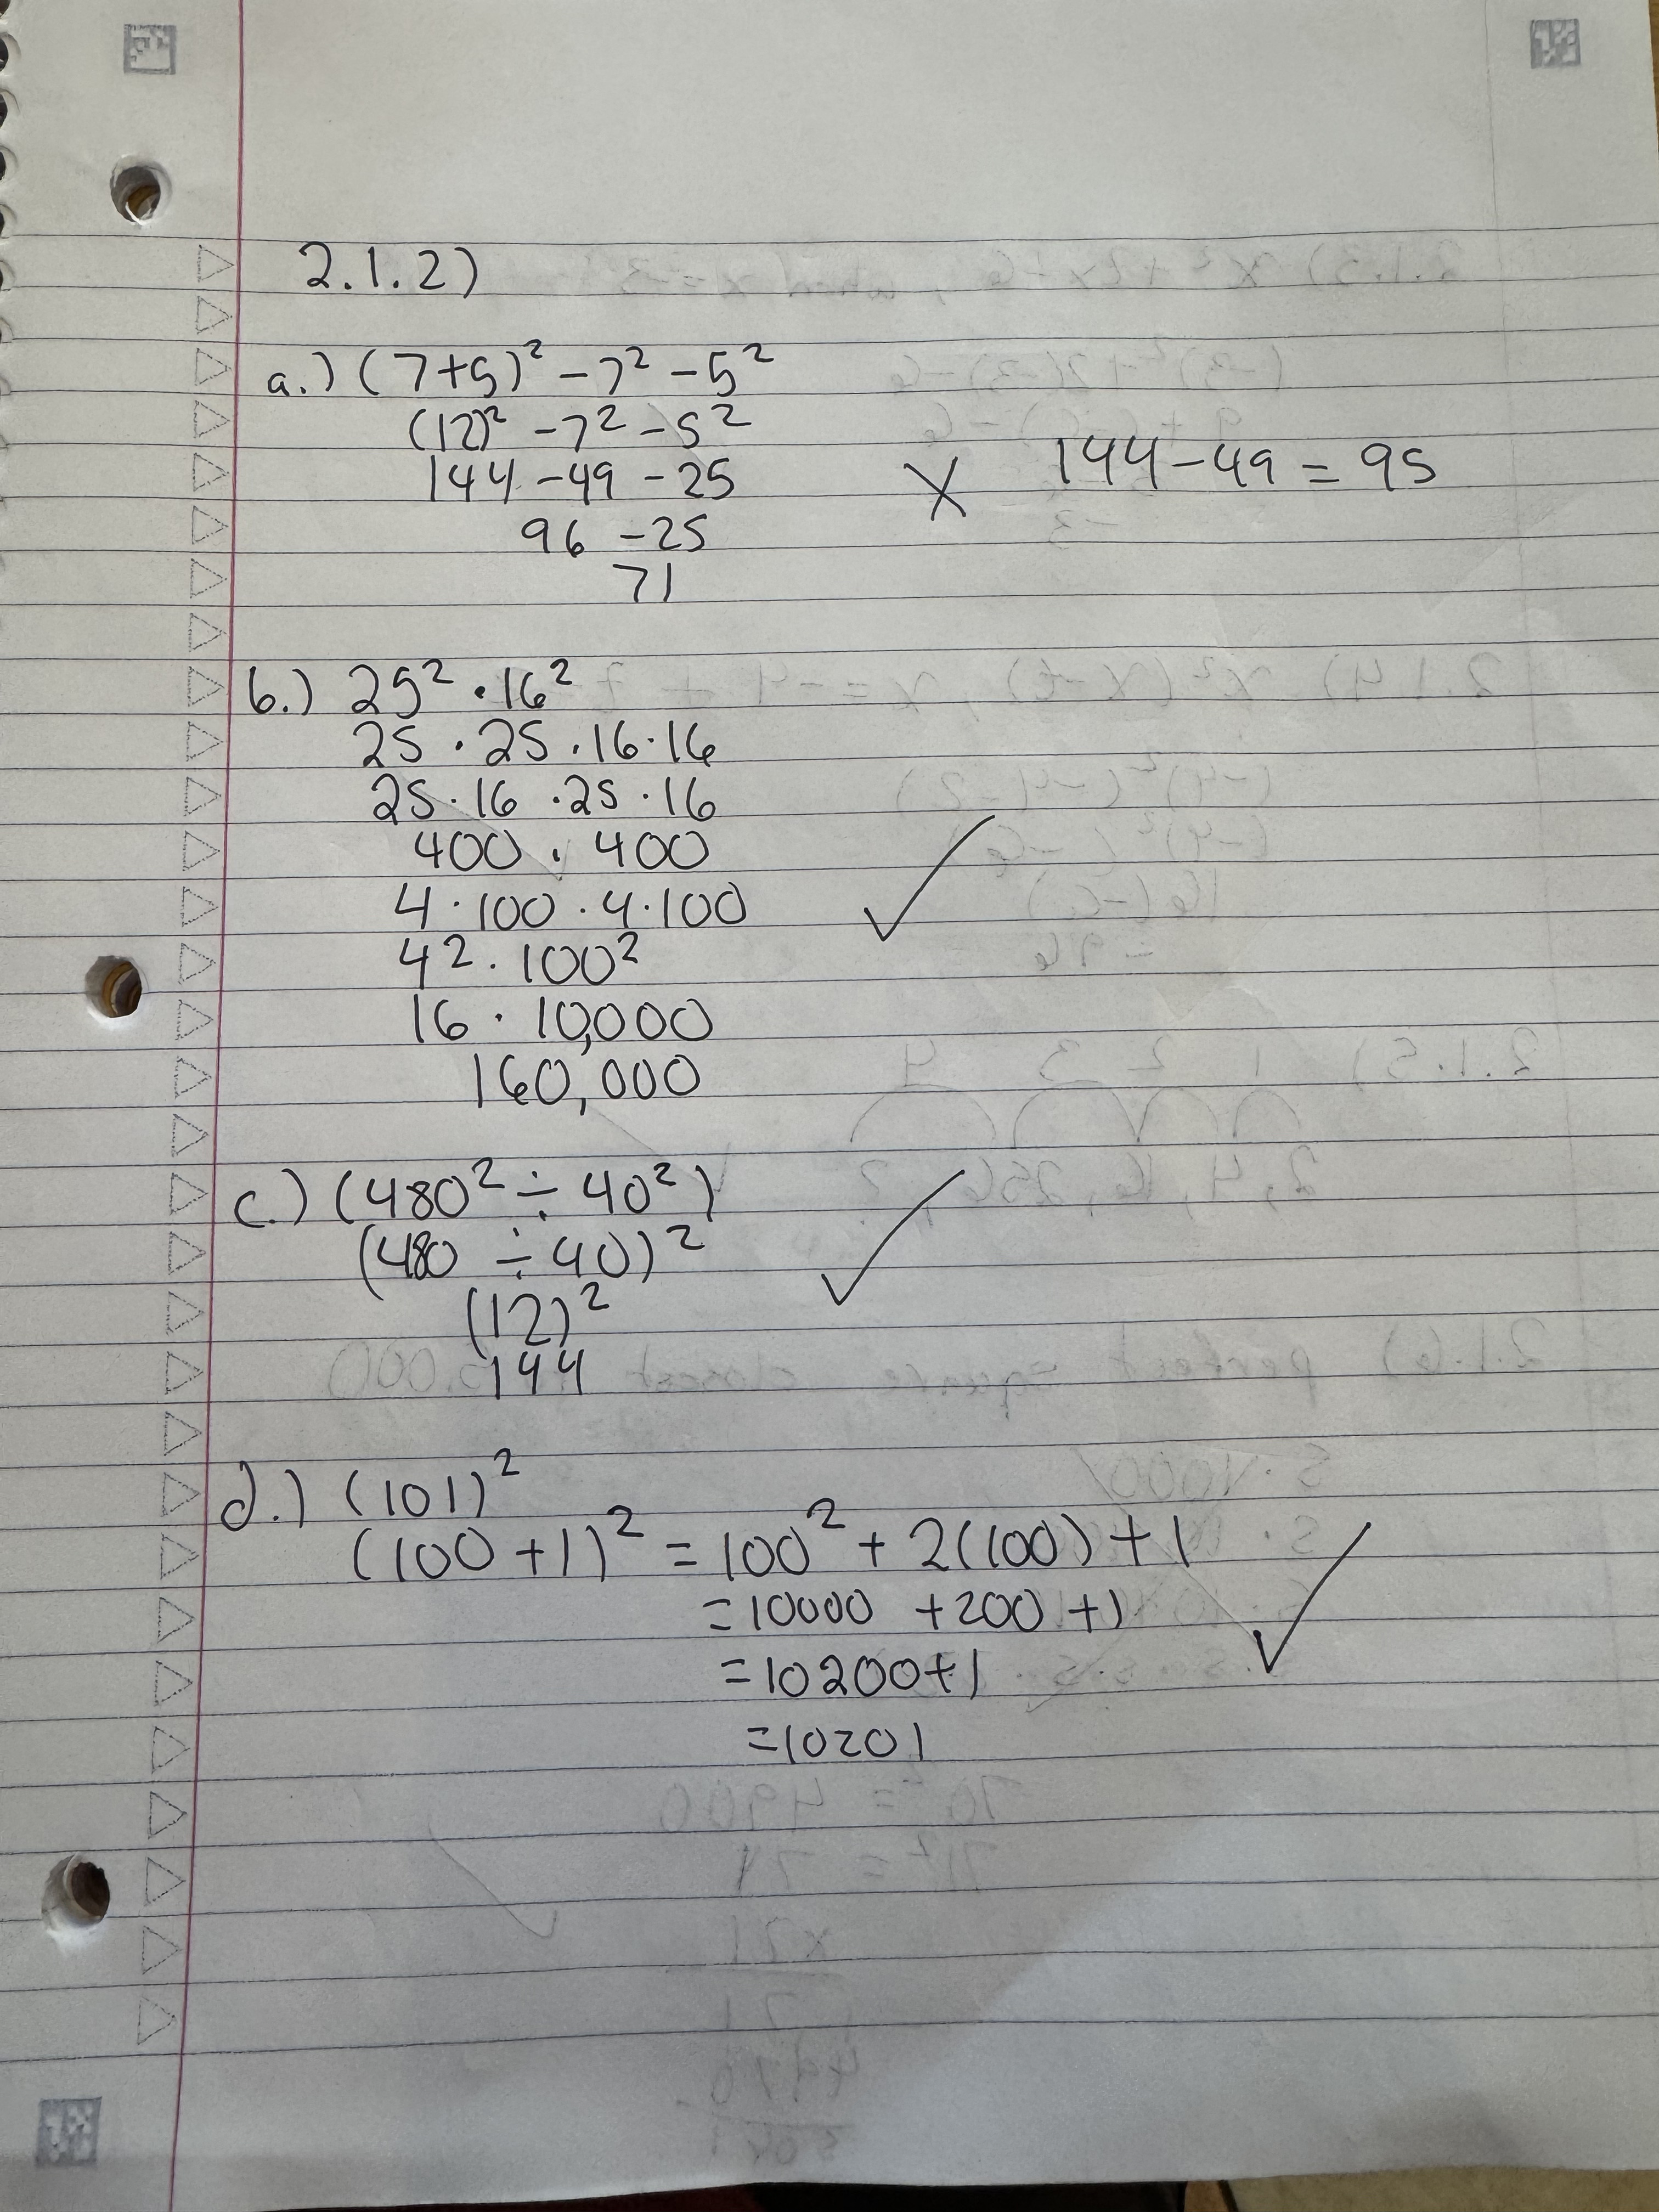 2.1.2)
a.) (7+5)² - 7² - 5²
(12)² - 7² - 5²
144 - 49 - 25
X 144 - 49 = 95
96 - 25
71
b.) 25² · 16²
25 · 25 · 16 · 16
25 · 16 · 25 · 16
400 · 400
4 · 100 · 4 · 100
4² · 100²
16 · 10,000
160,000
c.) (480² ÷ 40²)
(480 ÷ 40)²
(12)²
144
d.) (101)²
(100 + 1)² = 100² + 2(100) + 1
= 10000 + 200 + 1
= 10200 + 1
= 10201